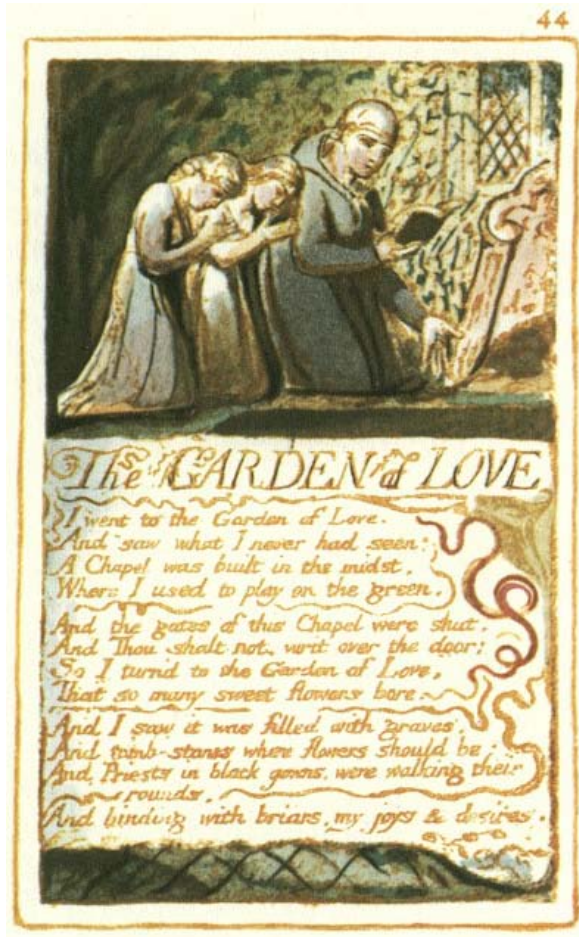 44
The GARDEN of LOVE
I went to the Garden of Love.
And saw what I never had seen:
A Chapel was built in the midst,
Where I used to play on the green.
And the gates of this Chapel were shut,
And Thou shalt not, writ over the door;
So I turnd to the Garden of Love,
That so many sweet flowers bore.
And I saw it was filled with graves,
And tomb-stones where flowers should be:
And Priests in black gowns, were walking their
rounds,
And binding with briars, my joys & desires.